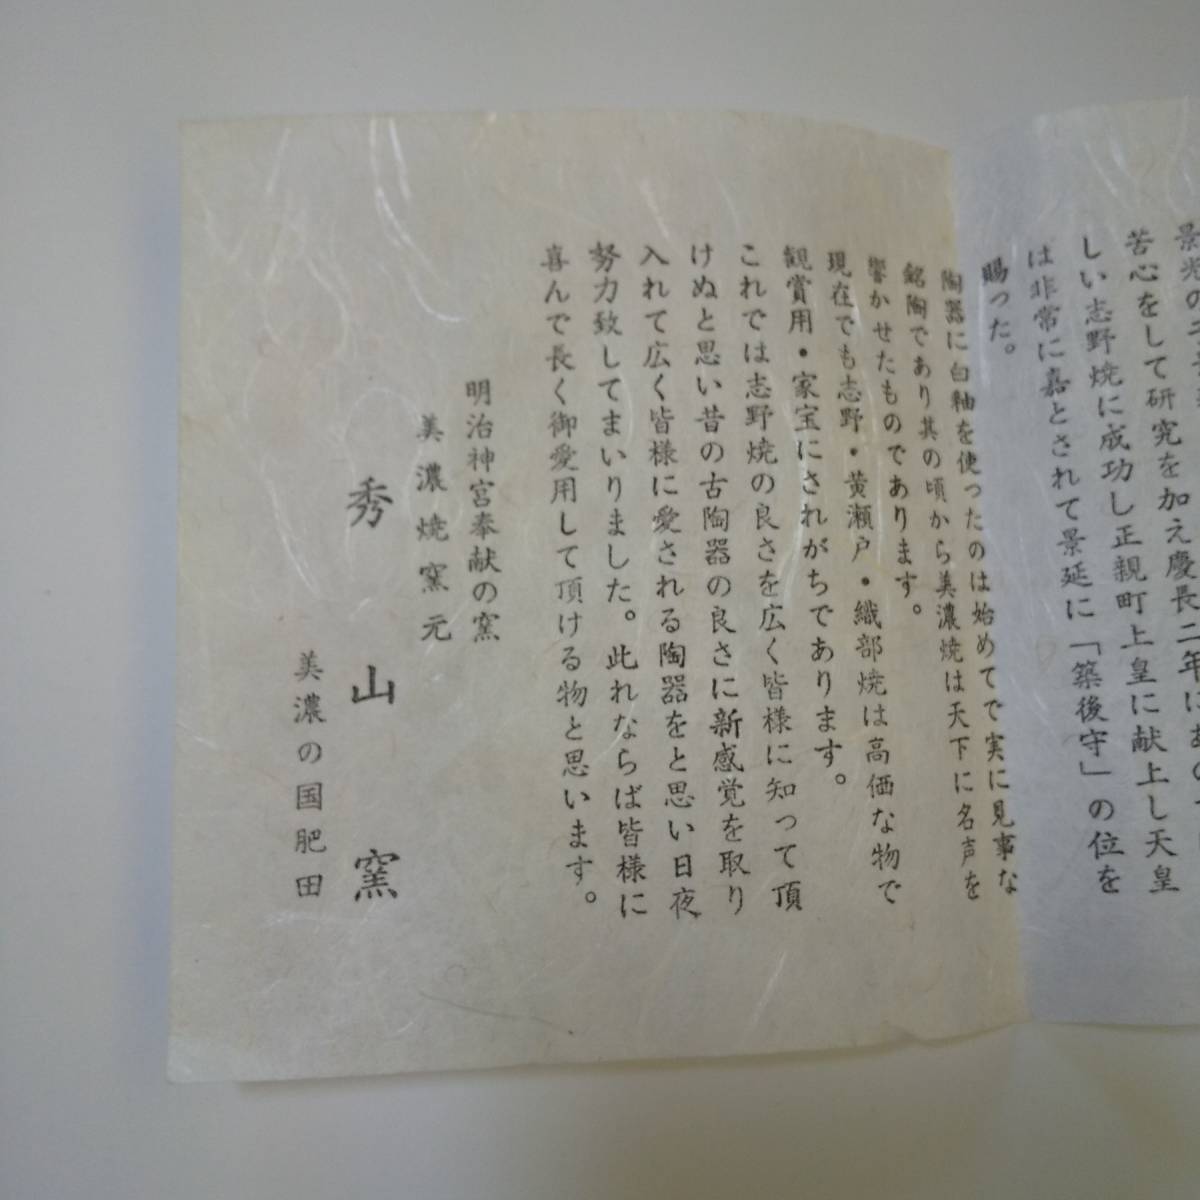 景光の
苦心をして研究を加え慶長二年に
しい志野焼に成功し正親町上皇に献上し天皇
は非常に嘉とされて景延に「築後守」の位を
賜った。
陶器に白釉を使ったのは始めてで実に見事な
銘陶であり其の頃から美濃焼は天下に名声を
響かせたものであります。
現在でも志野・黄瀬戸・織部焼は高価な物で
観賞用・家宝にされがちであります。
これでは志野焼の良さを広く皆様に知って頂
けぬと思い昔の古陶器の良さに新感覚を取り
入れて広く皆様に愛される陶器をと思い日夜
努力致してまいりました。此れならば皆様に
喜んで長く御愛用して頂ける物と思います。
明治神宮奉献の窯
美濃焼窯元
秀山窯
美濃の国肥田